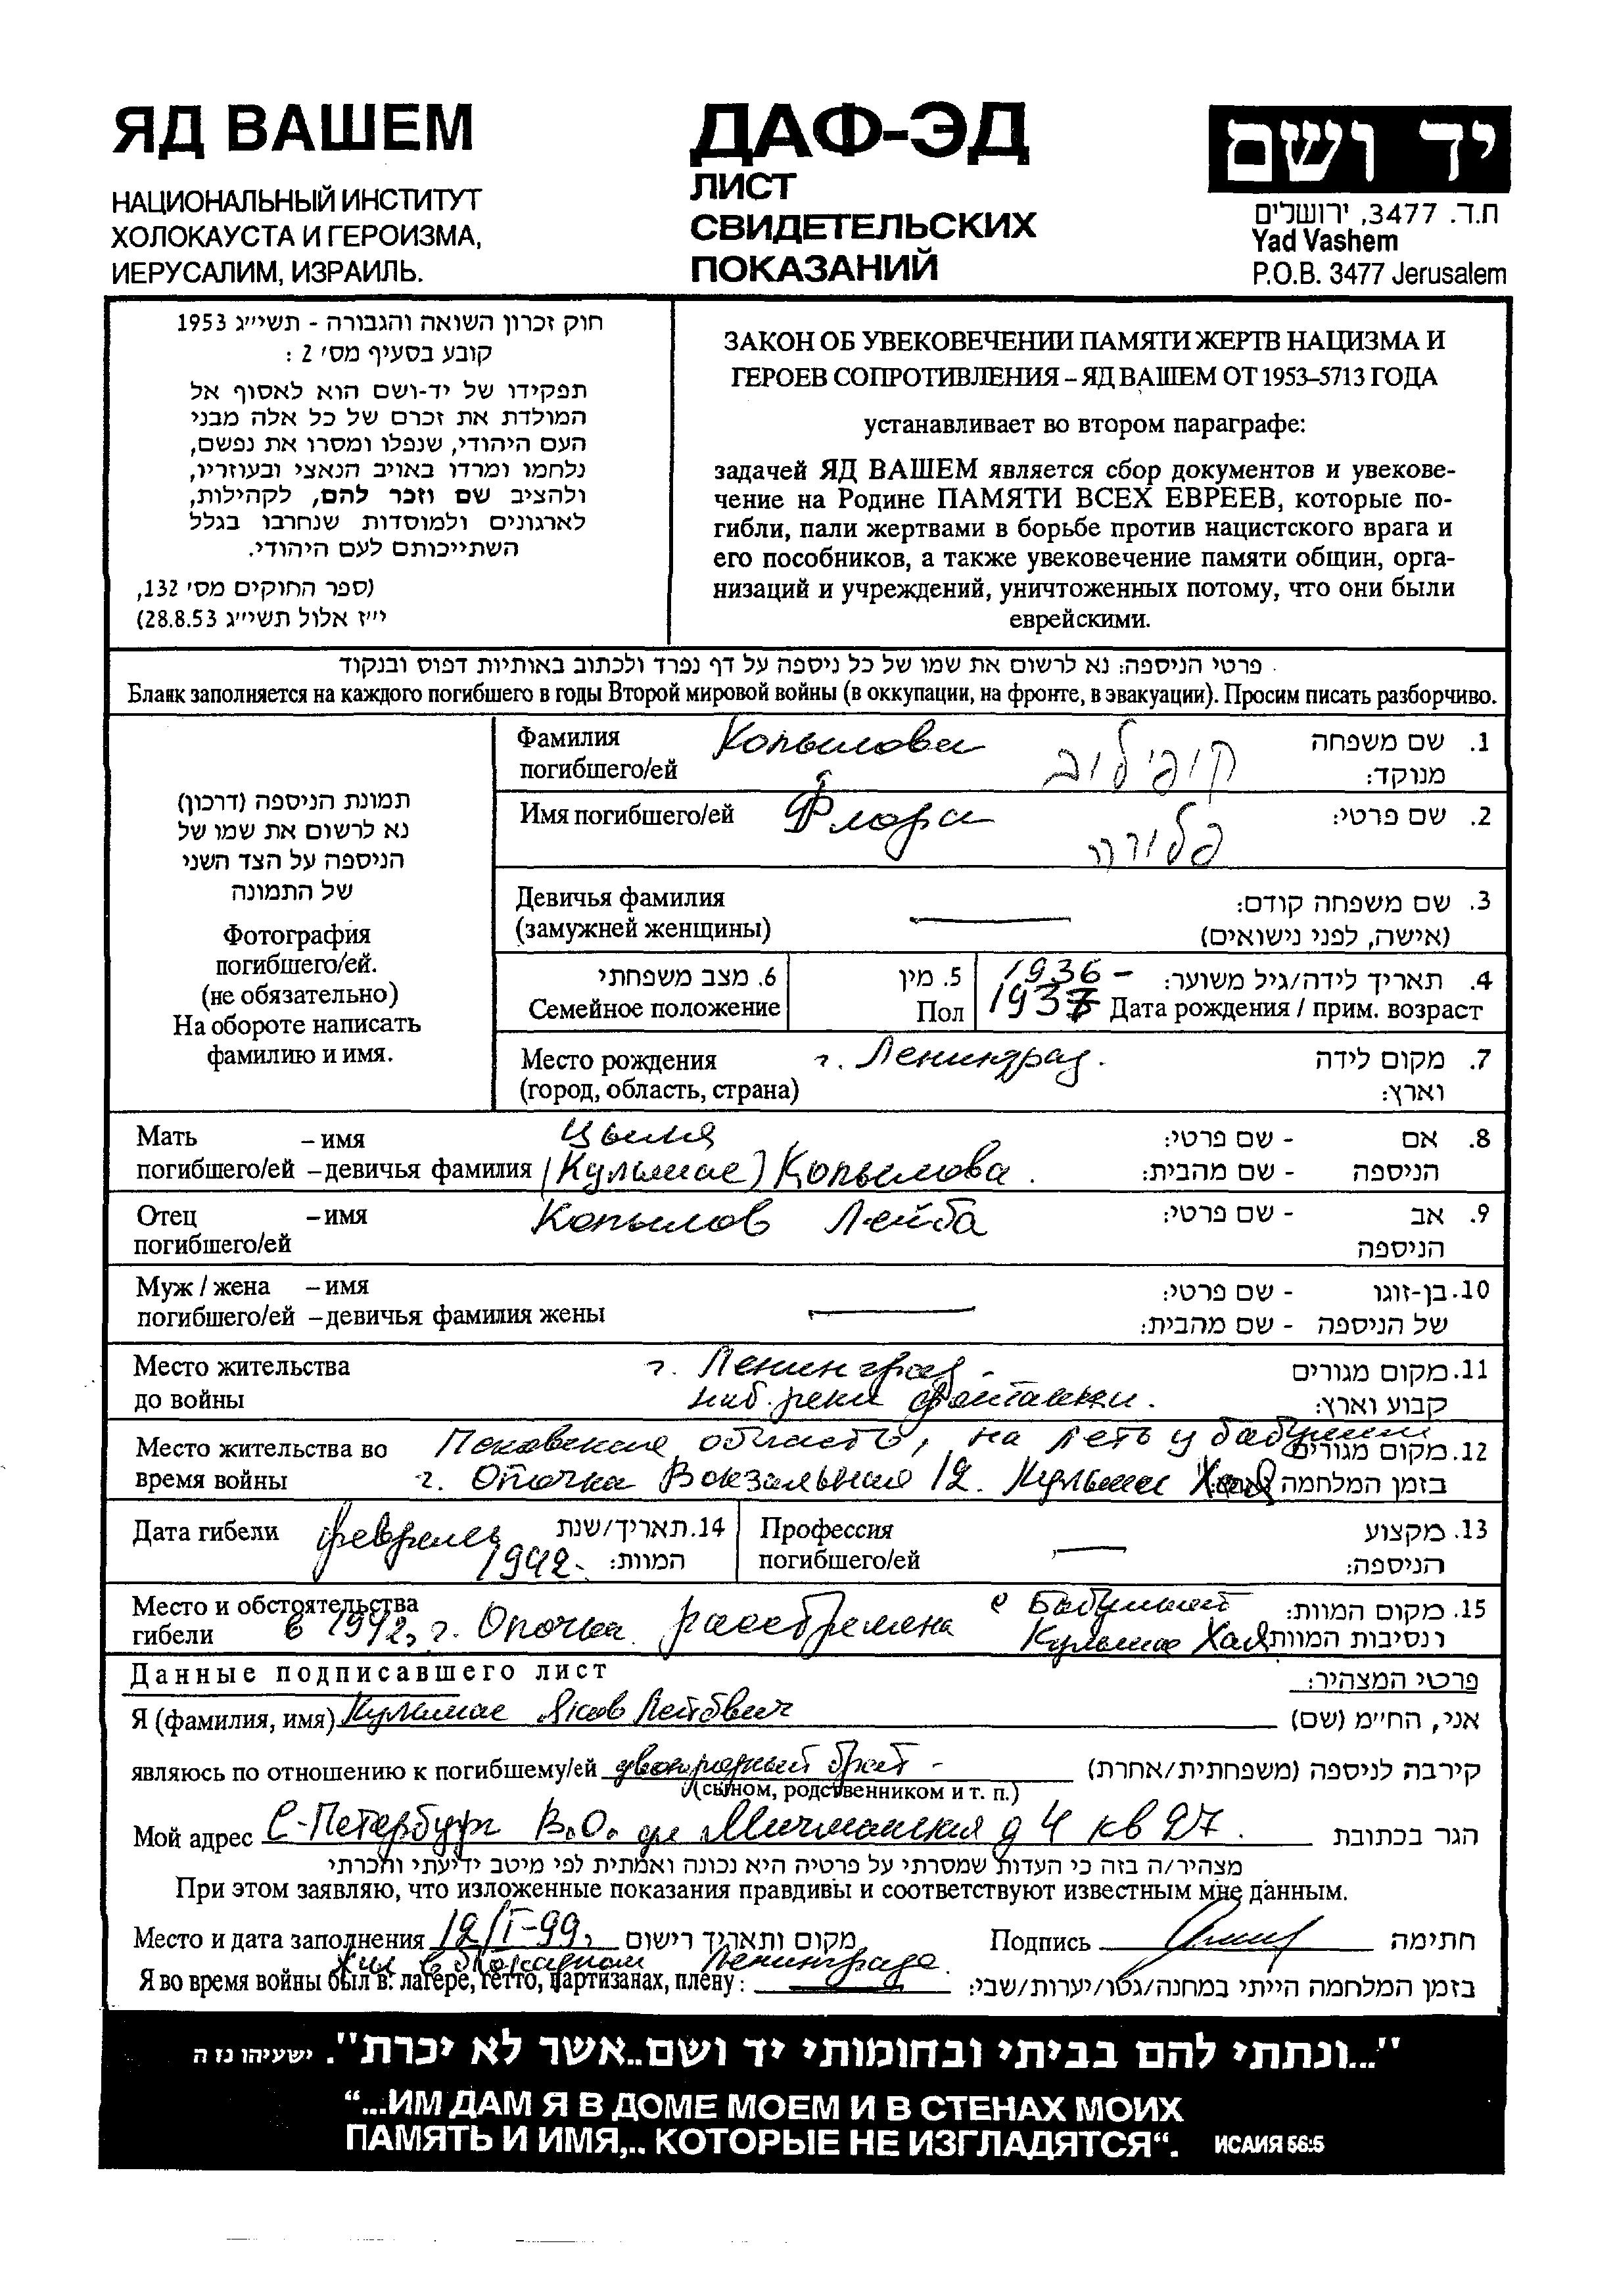 ЯД ВАШЕМ
НАЦИОНАЛЬНЫЙ ИНСТИТУТ
ХОЛОКАУСТА И ГЕРОИЗМА,
ИЕРУСАЛИМ, ИЗРАИЛЬ.
ДАФ-ЭД
ЛИСТ
СВИДЕТЕЛЬСКИХ
ПОКАЗАНИЙ
יד ושם
ת.ד. 3477, ירושלים
Yad Vashem
P.O.B. 3477 Jerusalem
חוק זכרון השואה והגבורה - תשי״ג 1953
קובע בסעיף מס׳ 2 :
תפקידו של יד-ושם הוא לאסוף אל
המולדת את זכרם של כל אלה מבני
העם היהודי, שנפלו ומסרו את נפשם,
נלחמו ומרדו באויב הנאצי ובעוזריו,
ולהציב שם וזכר להם, לקהילות,
לארגונים ולמוסדות שנחרבו בגלל
השתייכותם לעם היהודי.
(ספר החוקים מס׳ 132,
י״ז אלול תשי״ג 28.8.53)
ЗАКОН ОБ УВЕКОВЕЧЕНИИ ПАМЯТИ ЖЕРТВ НАЦИЗМА И
ГЕРОЕВ СОПРОТИВЛЕНИЯ – ЯД ВАШЕМ ОТ 1953–5713 ГОДА
устанавливает во втором параграфе:
задачей ЯД ВАШЕМ является сбор документов и увекове-
чение на Родине ПАМЯТИ ВСЕХ ЕВРЕЕВ, которые по-
гибли, пали жертвами в борьбе против нацистского врага и
его пособников, а также увековечение памяти общин, орга-
низаций и учреждений, уничтоженных потому, что они были
еврейскими.
פרטי הניספה: נא לרשום את שמו של כל ניספה על דף נפרד ולכתוב באותיות דפוס ובנקוד
Бланк заполняется на каждого погибшего в годы Второй мировой войны (в оккупации, на фронте, в эвакуации). Просим писать разборчиво.
תמונת הניספה (דרכון)
נא לרשום את שמו של
הניספה על הצד השני
של התמונה
Фотография
погибшего/ей.
(не обязательно)
На обороте написать
фамилию и имя.
Фамилия Копылова 1. שם משפחה
погибшего/ей קופילוב מנוקד:
Имя погибшего/ей Флора פלורה 2. שם פרטי:
Девичья фамилия 3. שם משפחה קודם:
(замужней женщины) (אישה, לפני נישואים)
6. מצב משפחתי 5. מין 1936 - 4. תאריך לידה/גיל משוער:
Семейное положение Пол 1937 Дата рождения / прим. возраст
Место рождения г. Ленинград. 7. מקום לידה
(город, область, страна) וארץ:
Мать – имя Цыля 8. אם - שם פרטי:
погибшего/ей – девичья фамилия (Кульмас) Копылова. הניספה - שם מהבית:
Отец – имя Копылов Лейба 9. אב - שם פרטי:
погибшего/ей הניספה
Муж / жена – имя 10. בן-זוגו - שם פרטי:
погибшего/ей – девичья фамилия жены של הניספה - שם מהבית:
Место жительства г. Ленинград. 11. מקום מגורים
до войны наб. реки Фонтанки. קבוע וארץ:
Место жительства во Псковская область, на лето у бабушки 12. מקום מגורים
время войны г. Опочка Вокзальная 12. Кульмас Хая בזמן המלחמה
Дата гибели февраль 14. תאריך/שנת Профессия 13. מקצוע
1942. המוות: погибшего/ей הניספה:
Место и обстоятельства с Бабушкой 15. מקום המוות:
гибели в 1942, г. Опочка расстреляна Кульмас Хая ונסיבות המוות
Данные подписавшего лист פרטי המצהיר:
Я (фамилия, имя) Кульмас Яков Лейбвич אני, הח״מ (שם)
являюсь по отношению к погибшему/ей двоюродный брат - קירבה לניספה (משפחתית/אחרת)
(сыном, родственником и т. п.)
Мой адрес С-Петербург В.О. ул Мичманская д 4 кв 27. הגר בכתובת
מצהיר/ה בזה כי העדות שמסרתי על פרטיה היא נכונה ואמתית לפי מיטב ידיעתי והכרתי
При этом заявляю, что изложенные показания правдивы и соответствуют известным мне данным.
Место и дата заполнения 12/I-99, מקום ותאריך רישום Подпись חתימה
жил в блокадном Ленинграде.
Я во время войны был в: лагере, гетто, партизанах, плену: בזמן המלחמה הייתי במחנה/גטו/יערות/שבי:
"...ונתתי להם בביתי ובחומותי יד ושם..אשר לא יכרת". ישעיהו נז ה
“...ИМ ДАМ Я В ДОМЕ МОЕМ И В СТЕНАХ МОИХ
ПАМЯТЬ И ИМЯ,.. КОТОРЫЕ НЕ ИЗГЛАДЯТСЯ“. ИСАИЯ 56:5